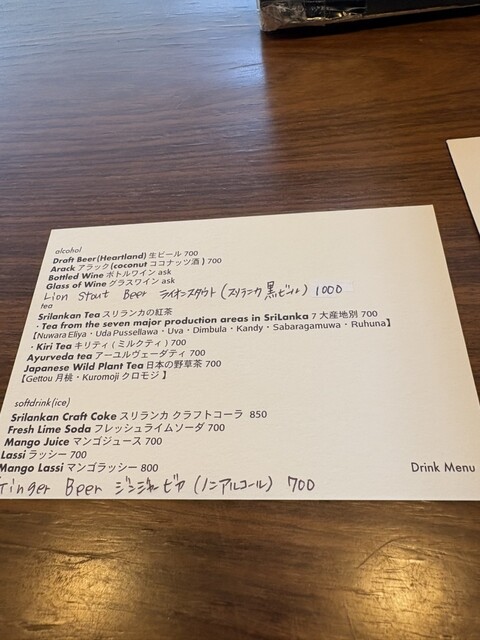 alcohol
Draft Beer(Heartland) 生ビール 700
Arack アラック(coconut ココナッツ酒) 700
Bottled Wine ボトルワイン ask
Glass of Wine グラスワイン ask
Lion Stout Beer ライオンスタウト (スリランカ 黒ビール) 1000
tea
Srilankan Tea スリランカの紅茶
・Tea from the seven major production areas in SriLanka 7大産地別 700
【Nuwara Eliya・Uda Pussellawa・Uva・Dimbula・Kandy・Sabaragamuwa・Ruhuna】
・Kiri Tea キリティ(ミルクティ) 700
Ayurveda tea アーユルヴェーダティ 700
Japanese Wild Plant Tea 日本の野草茶 700
【Gettou 月桃・Kuromoji クロモジ】
softdrink(ice)
Srilankan Craft Coke スリランカ クラフトコーラ 850
Fresh Lime Soda フレッシュライムソーダ 700
Mango Juice マンゴジュース 700
Lassi ラッシー 700
Mango Lassi マンゴラッシー 800
Drink Menu
Ginger Beer ジンジャービア (ノンアルコール) 700